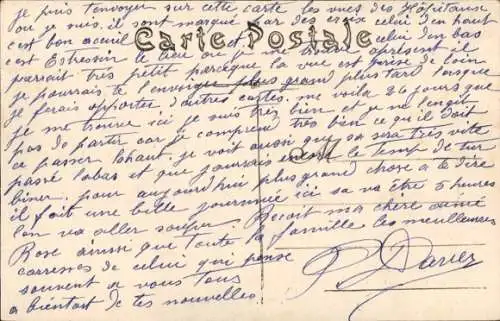 je puis t'envoyer sur cette carte les vues des Hopitaux
ou je suis. il sont marqué par des croix celui d'en haut
est bon acueil et celui d'en bas
Carte Postale
est le lieu ou je me trouve apresent il
parait très petit parceque la vue est prise de loin
je pourrais te l'envoyer plus grand plus tard lorsque
je ferais apporter d'autres cartes. me voila 26 jours que
je me trouve ici je suis très bien et je ne
pas de partir car je comprend très bien ce qu'il doit
ce passer labaut, je voit aussi que sa sera très vite
passé labas et que j'aurais le temp de
biner. pour aujourd'hui plus grand chose a te dire
il fait une belle journnée ici sa va être 5 heures
l'on va aller souper. Recoit ma chère
Rose ainsi que toute la famille les meilleures
caresses de celui qui pense
souvent a vous tous
a bientôt de tes nouvelles